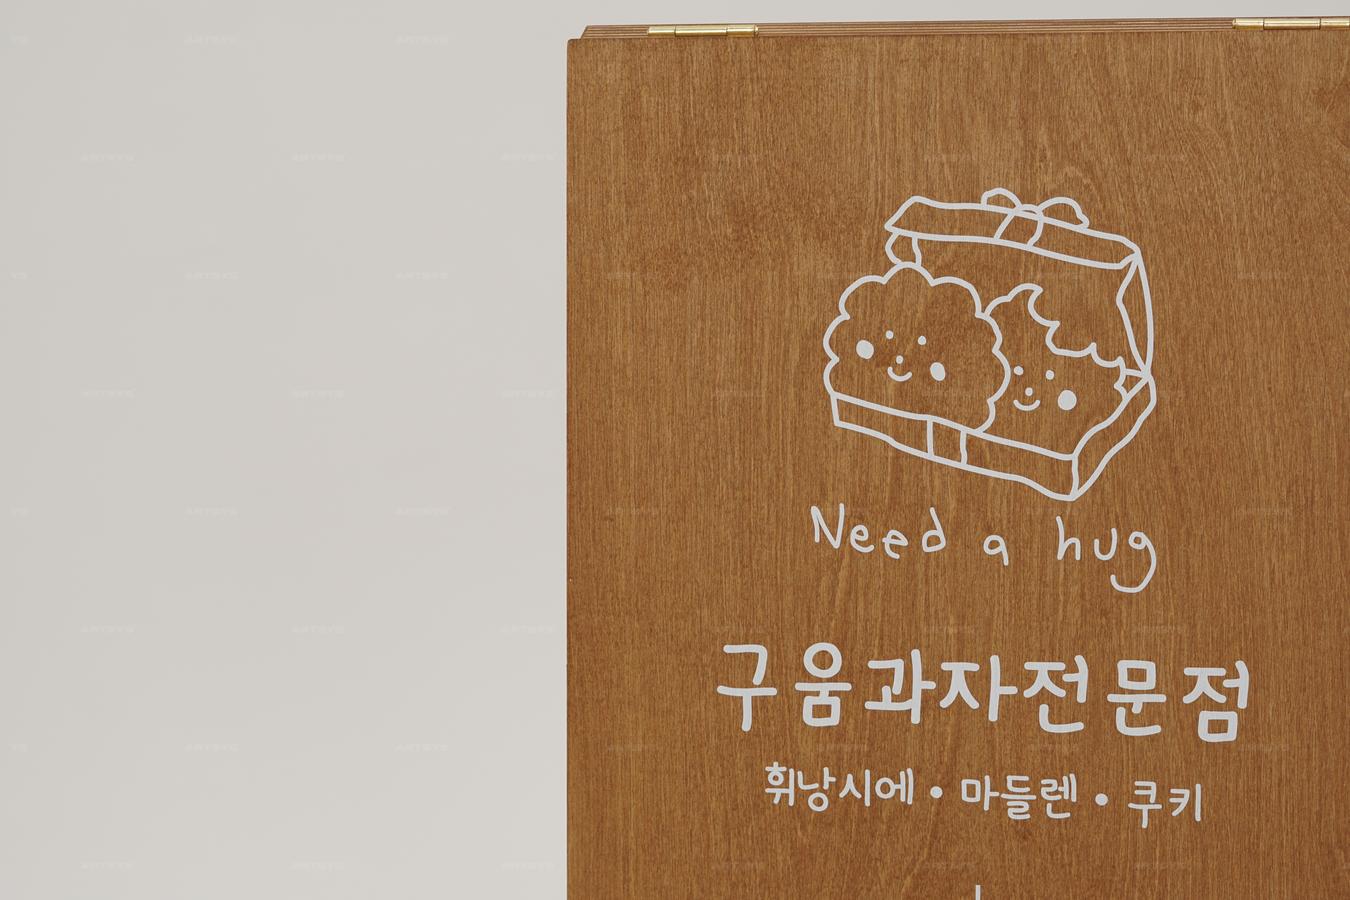 Need a hug
구움과자전문점
휘낭시에 • 마들렌 • 쿠키